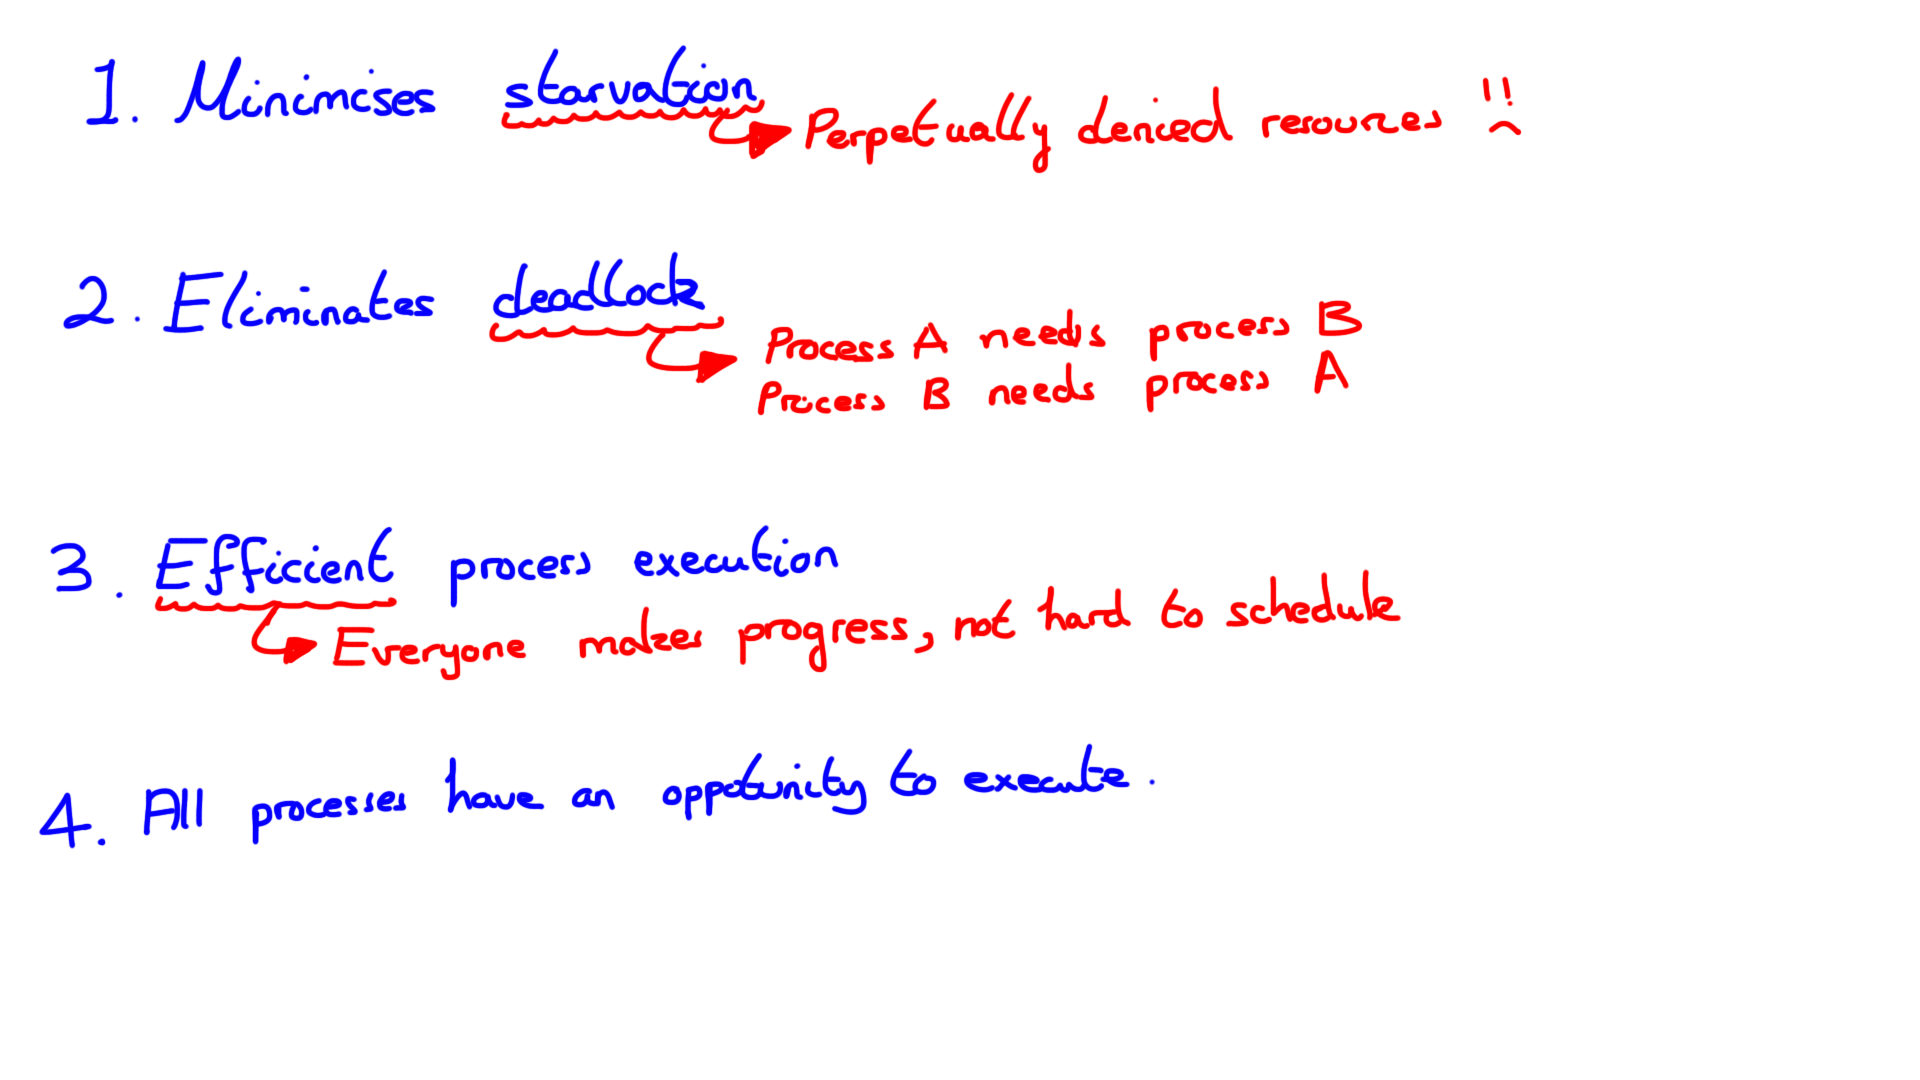 1. Minimises starvation
Perpetually denied resources !!
2. Eliminates deadlock
Process A needs process B
Process B needs process A
3. Efficient process execution
Everyone makes progress, not hard to schedule
4. All processes have an oppotunity to execute.